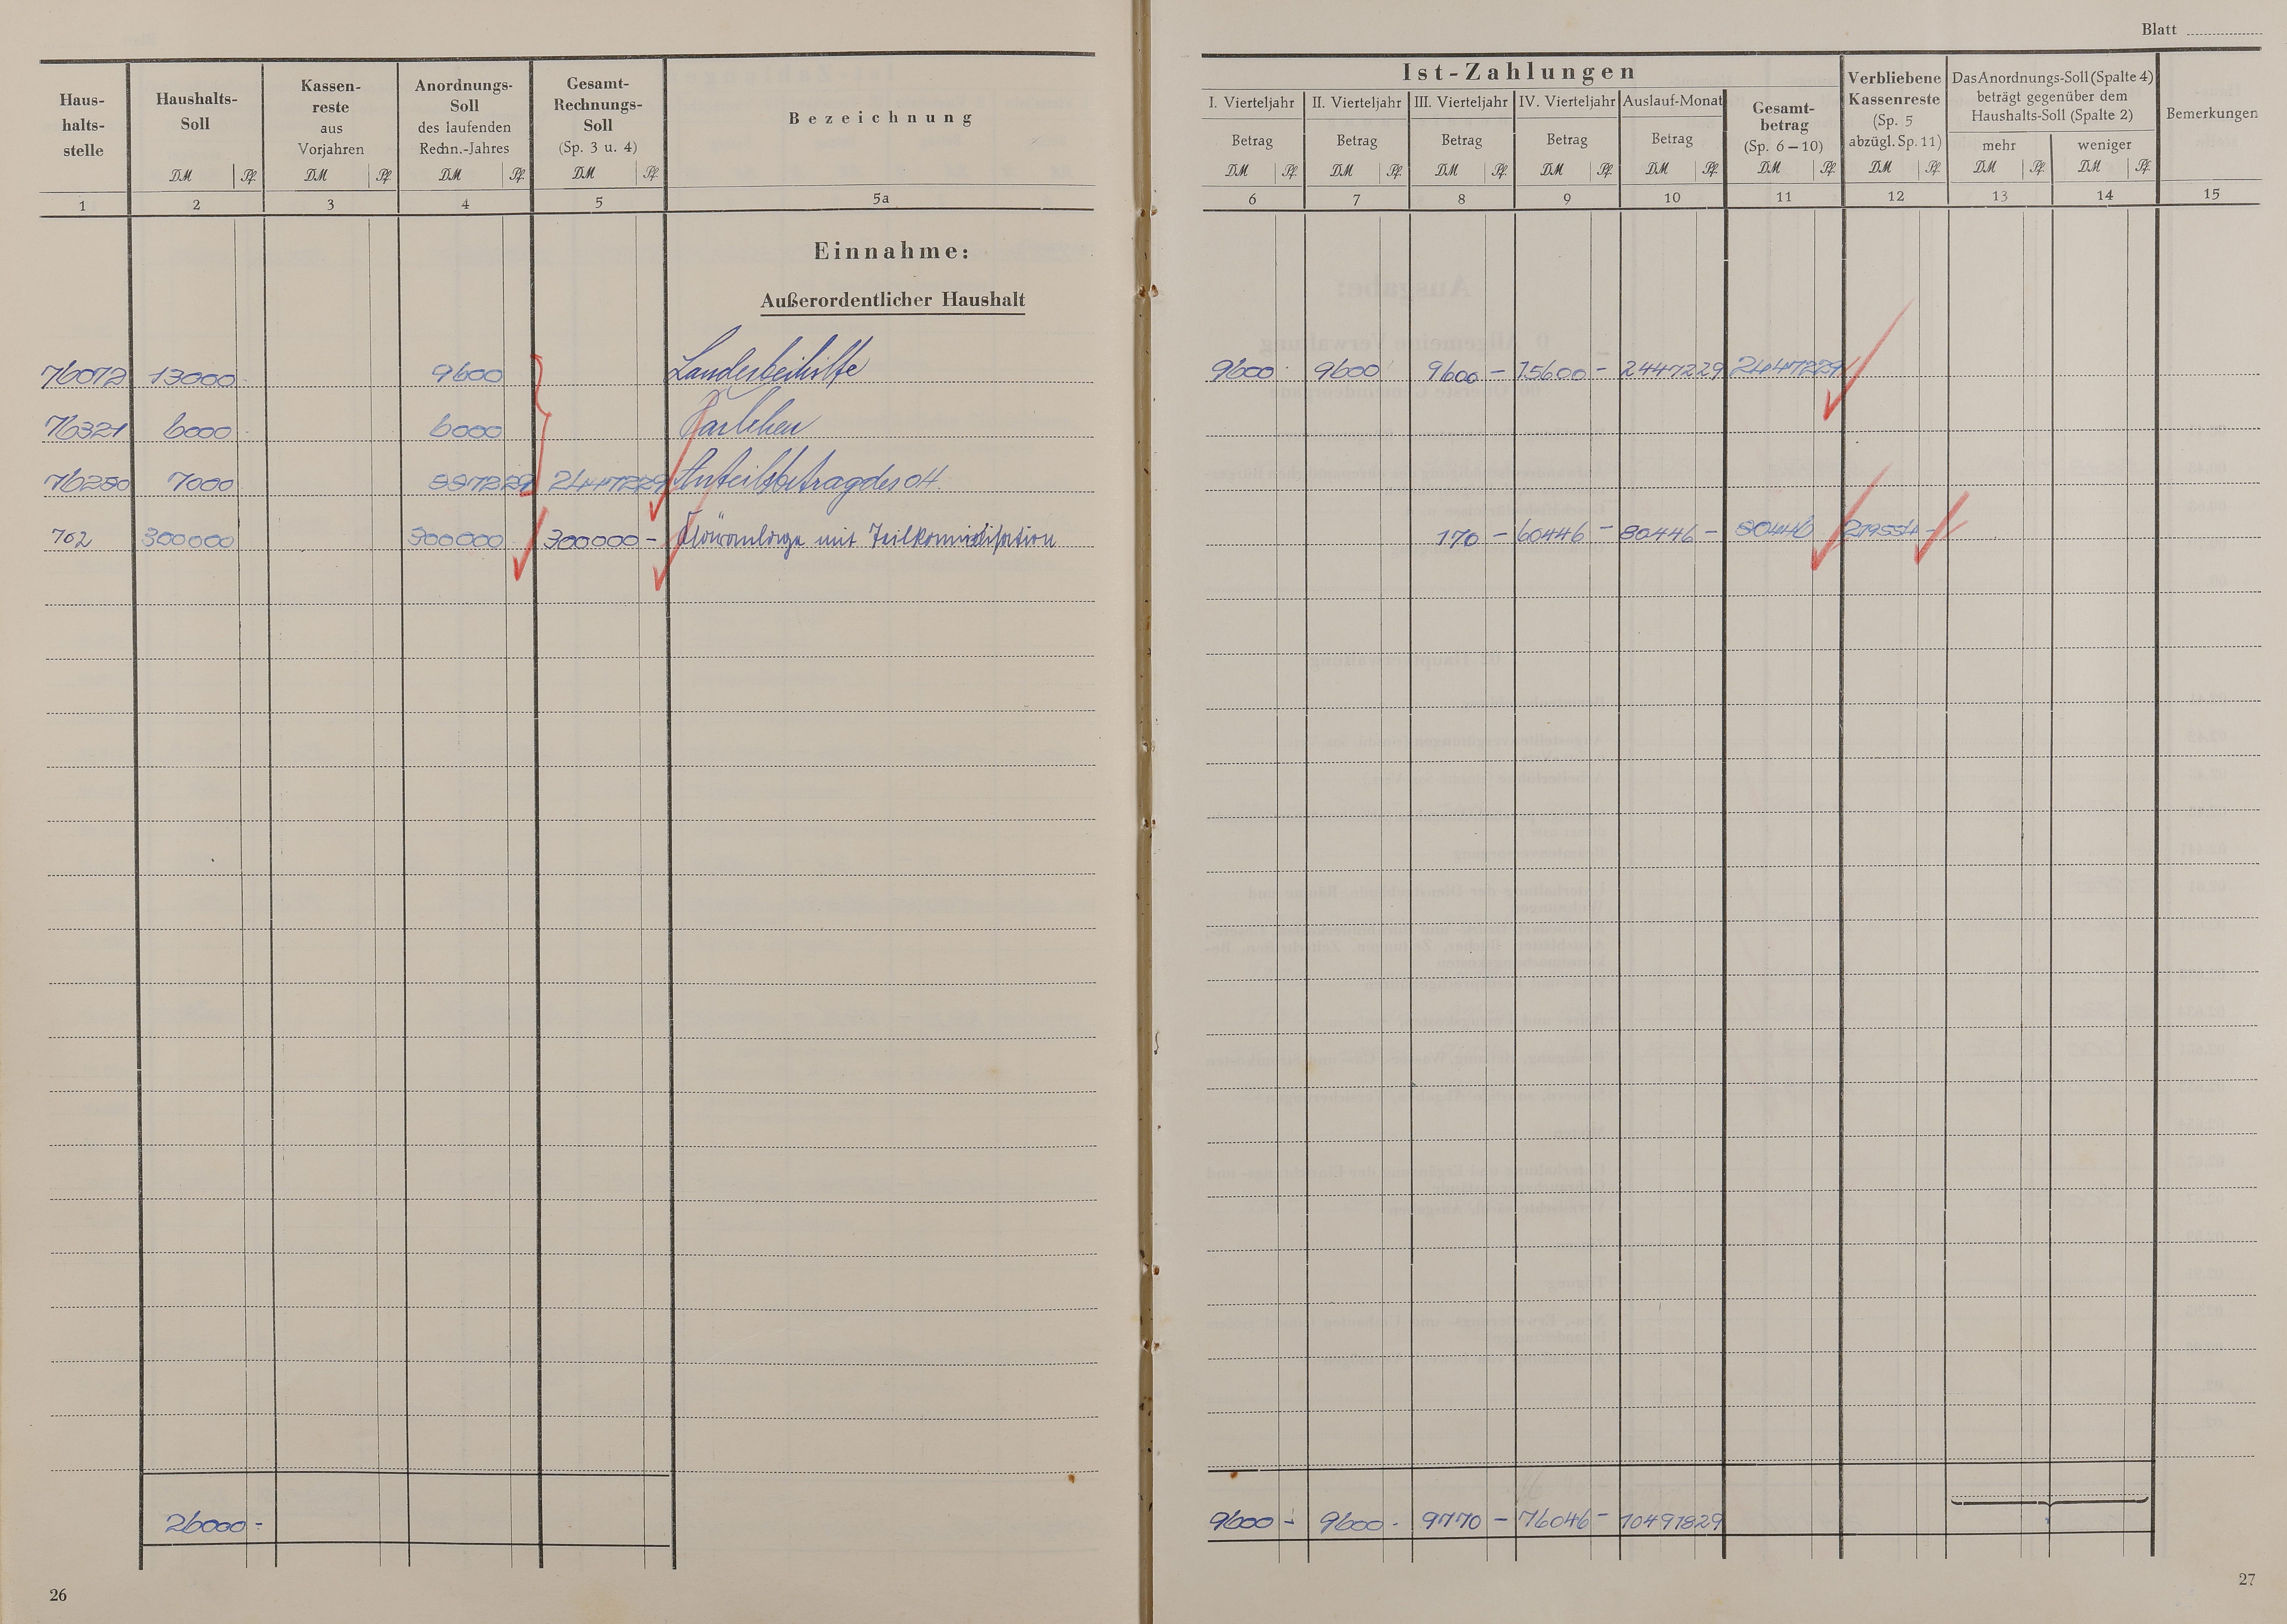 Blatt
Haus-
halts-
stelle
Haushalts-
Soll
DM Pf.
Kassen-
reste
aus
Vorjahren
DM Pf.
Anordnungs-
Soll
des laufenden
Rechn.-Jahres
DM Pf.
Gesamt-
Rechnungs-
Soll
(Sp. 3 u. 4)
DM Pf.
Bezeichnung
1 2 3 4 5 5a
Einnahme:
Außerordentlicher Haushalt
76072 13000 9600 Landesbeihilfe
76321 6000 6000 Darlehen
76280 7000 887229 2447229 Anteilsbetrag des OH.
702 300000 300000 300000 – Kläranlage mit Teilkanalisation
26000 -
26
Ist-Zahlungen
I. Vierteljahr II. Vierteljahr III. Vierteljahr IV. Vierteljahr Auslauf-Monat
Betrag Betrag Betrag Betrag Betrag
DM Pf. DM Pf. DM Pf. DM Pf. DM Pf.
Gesamt-
betrag
(Sp. 6–10)
DM Pf.
Verbliebene
Kassenreste
(Sp. 5
abzügl. Sp. 11)
DM Pf.
Das Anordnungs-Soll (Spalte 4)
beträgt gegenüber dem
Haushalts-Soll (Spalte 2)
mehr weniger
DM Pf. DM Pf.
Bemerkungen
6 7 8 9 10 11 12 13 14 15
9600 9600 9600 – 15600 – 2447229 2447229
170 – 60446 – 80446 – 80446 219554 –
9600 – 9600 - 9770 – 76046 – 10491829
27